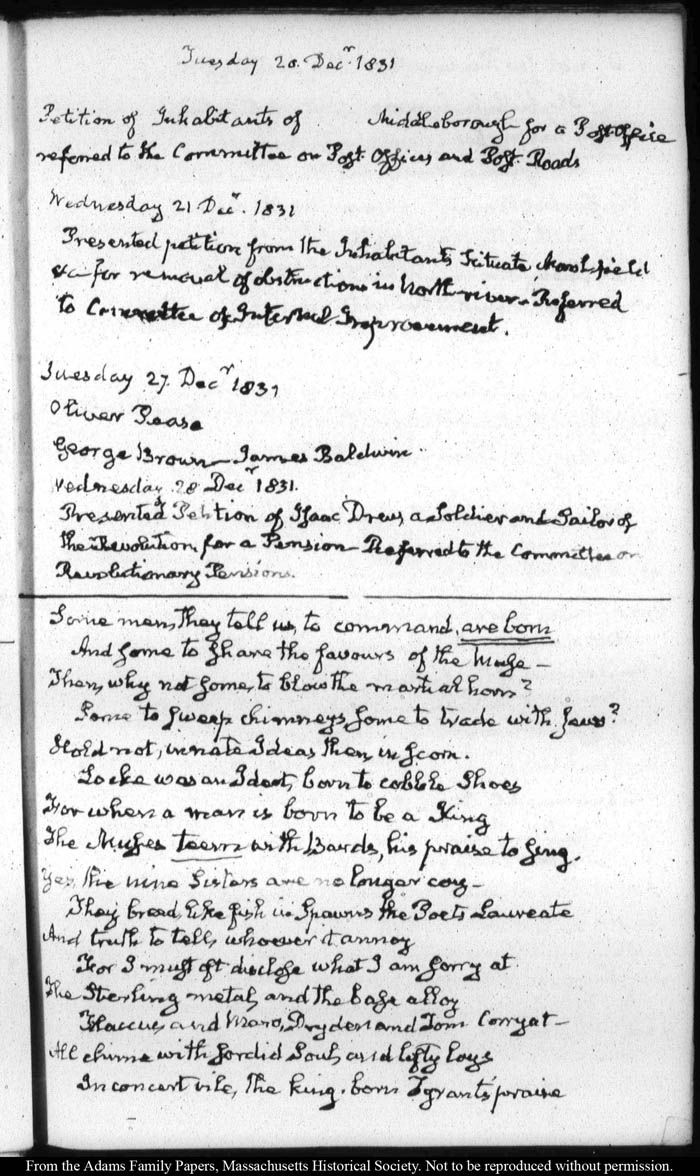 Tuesday 20. Decr. 1831
Petition of Inhabitants of Middleborough for a Post Office
referred to the Committee on Post Offices and Post Roads
Wednesday 21 Decr. 1831
Presented petition from the Inhabitants Scituate Marshfield
&c for removal of obstructions in North river. Referred
to Committee of Internal Improvement.
Tuesday 27. Decr 1831
Oliver Pease
George Brown — James Baldwin
Wednesday 28 Decr 1831.
Presented Petition of Isaac Drew, a Soldier and Sailor of
the Revolution, for a Pension — Referred to the Committee on
Revolutionary Pensions.
Some men, they tell us, to command, are born
And some to share the favours of the Muse —
Then, why not some, to blow the martial horn?
Some to sweep chimneys, some to trade with Jews?
Hold not, innate Ideas, then, in scorn.
Locke was an Ideot, born to cobble Shoes
For when a man is born to be a King
The Muses teem with Bards, his praise to sing.
Yes, the nine Sisters are no longer coy —
They breed, like fish in Spawns the Poets Laureate
And truth to tell, whoever it annoy
For I must oft disclose what I am sorry at
The Sterling metal, and the base alloy
Flaccus, and Maro, Dryden and Tom Corryat —
All chime with sordid Souls and lofty lays
In concert vile, the king-born Tyrants' praise
From the Adams Family Papers, Massachusetts Historical Society. Not to be reproduced without permission.